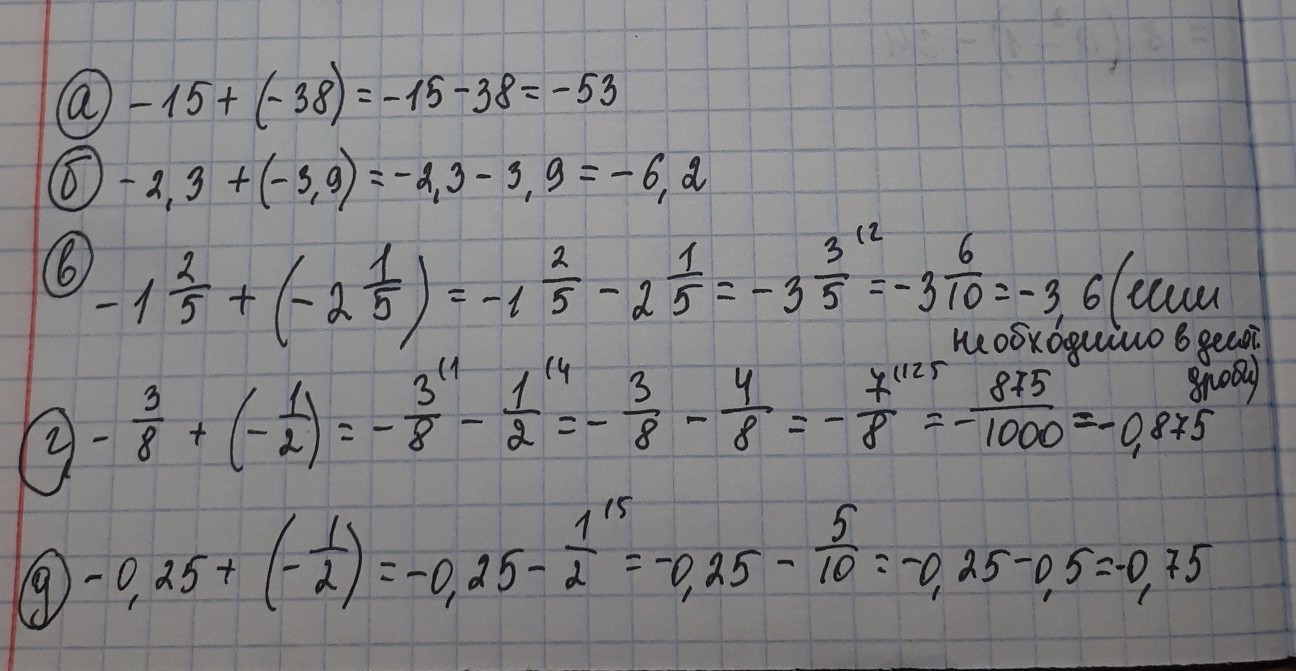 а) -15 + (-38) = -15 - 38 = -53
б) -2,3 + (-3,9) = -2,3 - 3,9 = -6,2
в) -1 2/5 + (-2 1/5) = -1 2/5 - 2 1/5 = -3 3/5 (2 = -3 6/10 = -3,6 (если
необходимо в десят.
дроби)
г) - 3/8 + (- 1/2) = - 3/8 (1 - 1/2 (4 = - 3/8 - 4/8 = - 7/8 (125 = - 875/1000 = -0,875
д) -0,25 + (- 1/2) = -0,25 - 1/2 (5 = -0,25 - 5/10 = -0,25 - 0,5 = -0,75